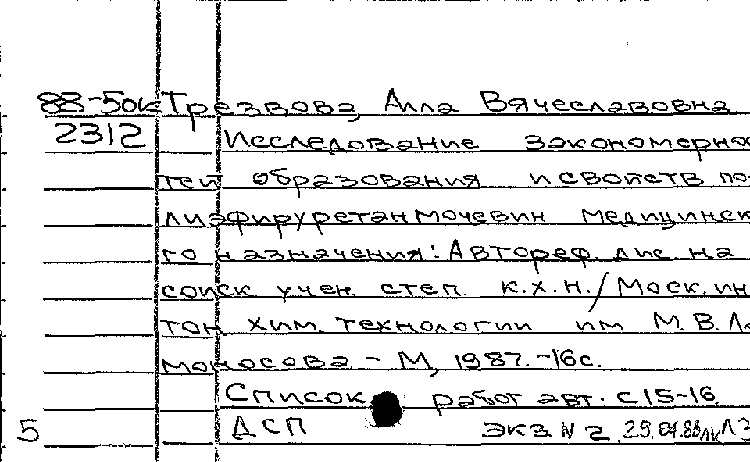 88-50к Трезвова, Алла Вячеславовна
2312 Исследование закономернос
тей образования и свойств по-
лиэфируретанмочевин медицинско
го назначения: Автореф. дис. на
соиск. учен. степ. к.х.н. / Моск. ин-
тон. хим. технологии им. М.В. Ло
моносова - М, 1987. - 16с.
Список работ авт. с 15-16.
5 ДСП экз N 2 29.04.88